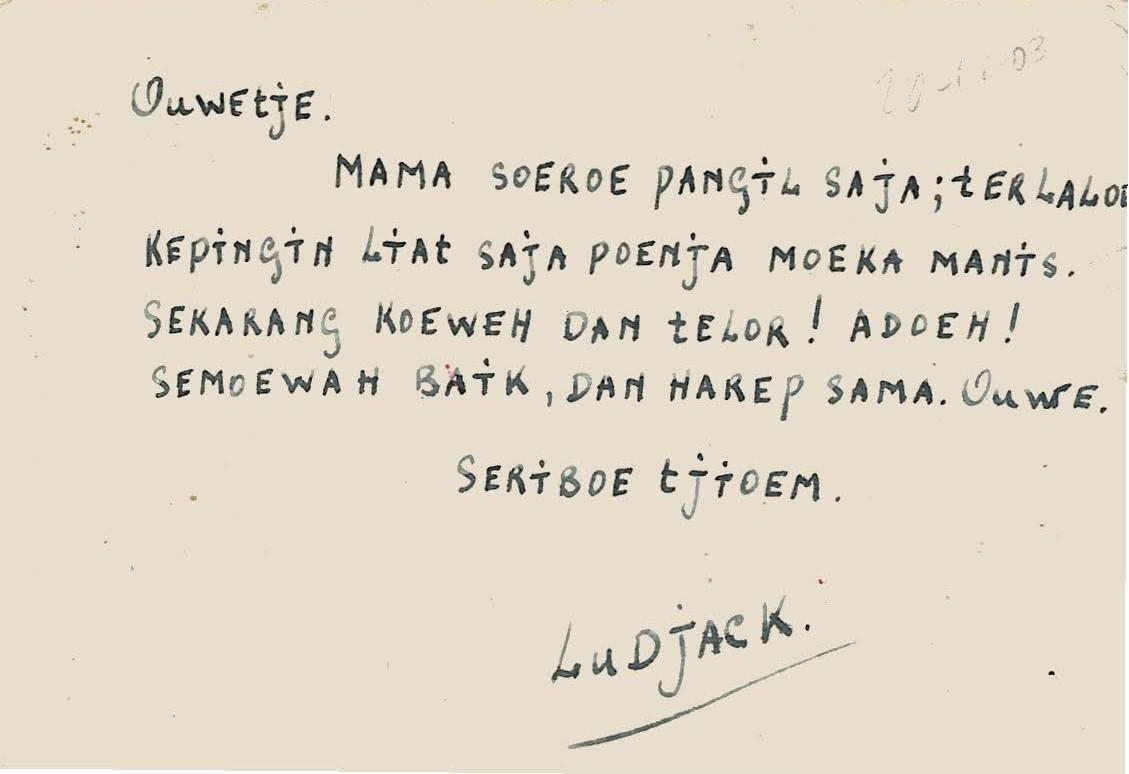 Ouwetje.
MAMA SOEROE PANGiL SAjA; tERLALOE
KEPiNGiN LiAt SAjA POENjA MOEKA MANiS.
SEKARANG KOEWEH DAN tELOR! ADOEH!
SEMOEWAH BAiK, DAN HAREP SAMA. OuwE.
SERiBOE tjiOEM.
LuDjACK.